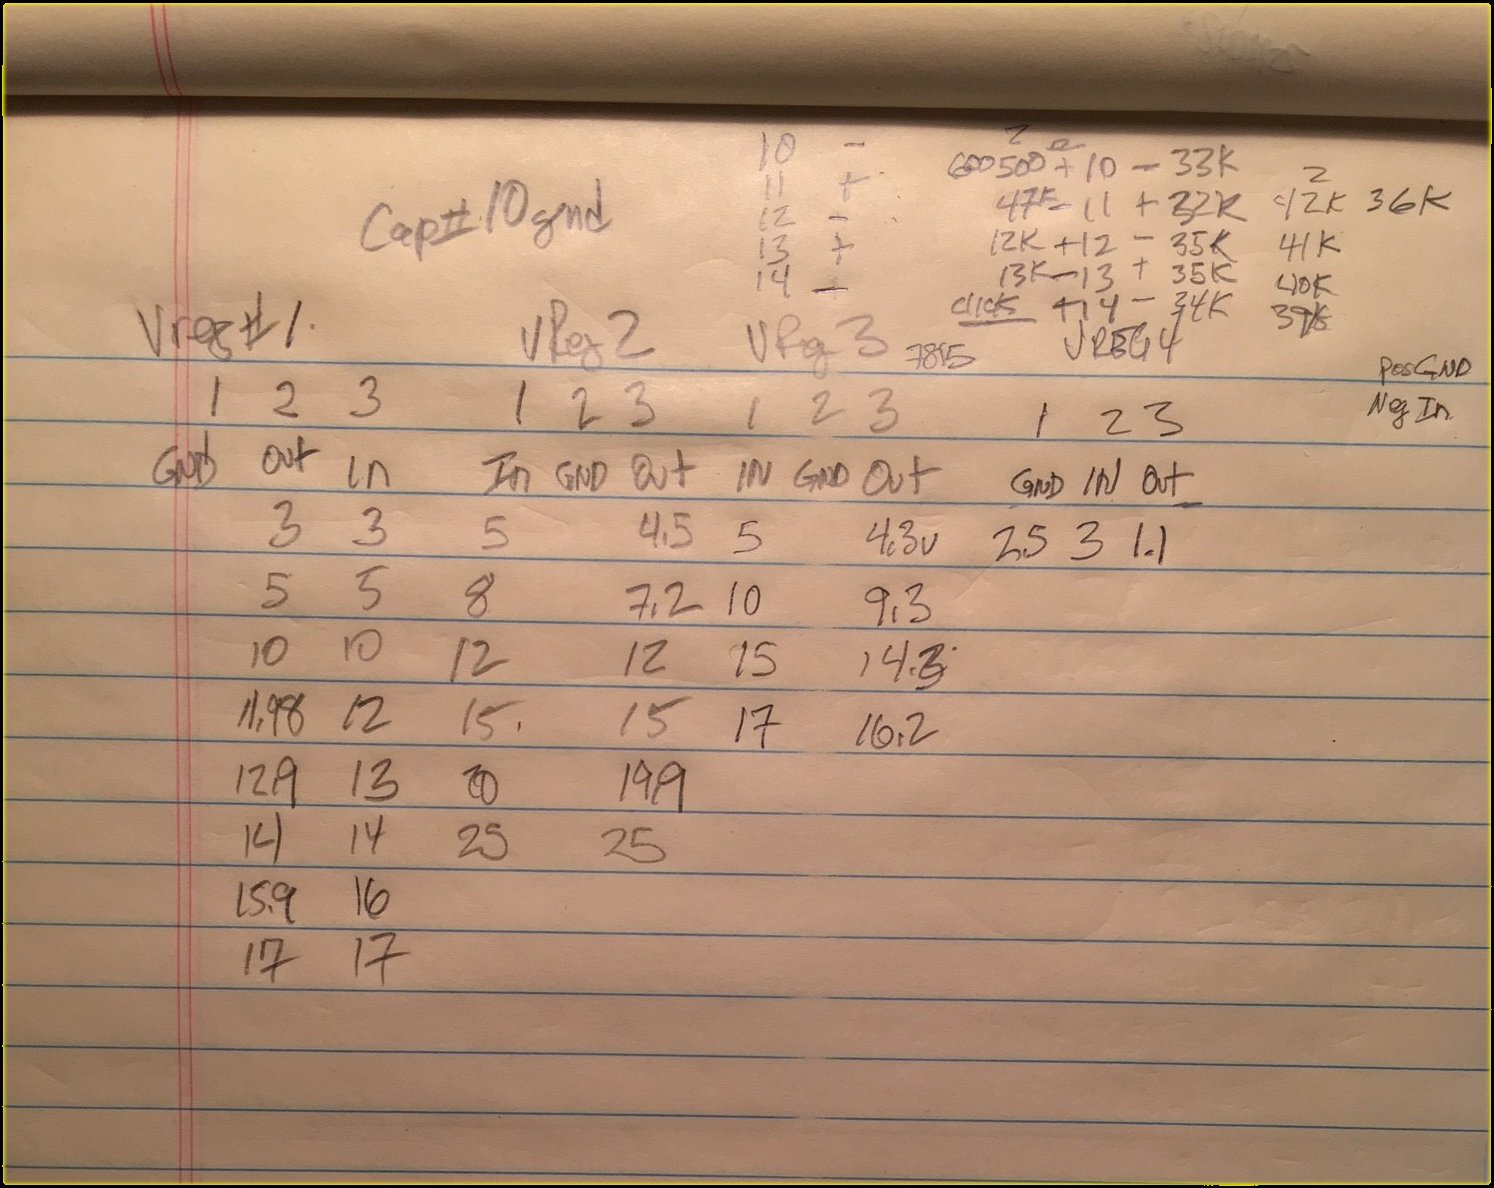 10 - 600 500 Ω + 10 - 33K
11 + 47K - 11 + 32K 42K 36K
Cap# 10 gnd
12 - 12K + 12 - 35K 41K
13 + 13K - 13 + 35K 40K
14 - click + 14 - 34K 39K
Vreg #1. VReg 2 VReg 3 7815 VREG 4
Pos GND
1 2 3 1 2 3 1 2 3 1 2 3 Neg In
GND Out In In GND Out IN GND Out GND IN Out
3 3 5 4.5 5 4.3v 2.5 3 1.1
5 5 8 7.2 10 9.3
10 10 12 12 15 14.3
11.98 12 15. 15 17 16.2
12.9 13 20 19.9
14 14 25 25
15.9 16
17 17